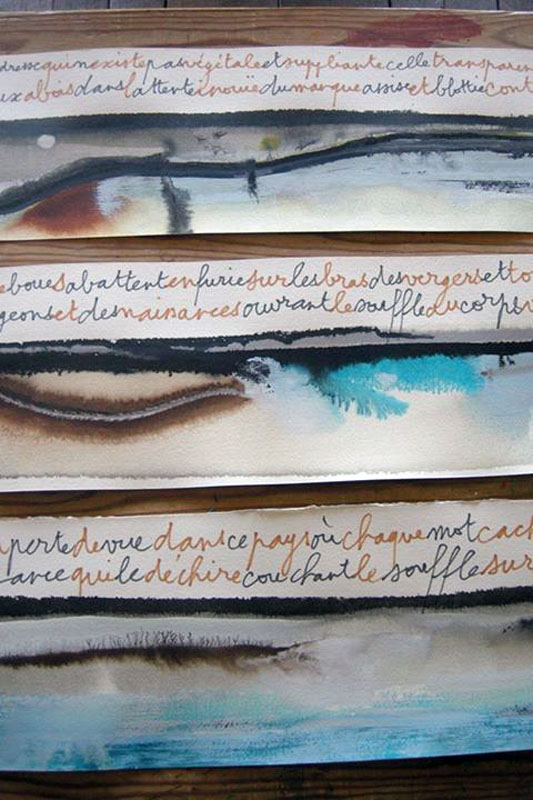 qui n'existe pas végétale et suppliante celle transparen
abois dans l'attente inouïe du marque assise et blottie cont
boue s'abattent en furie sur les bras des vergers et to
geons et des mains ouvrant le souffle du corps
perte de vue dans ce pays où chaque mot cach
ance qui le déchire couchant le souffle sur